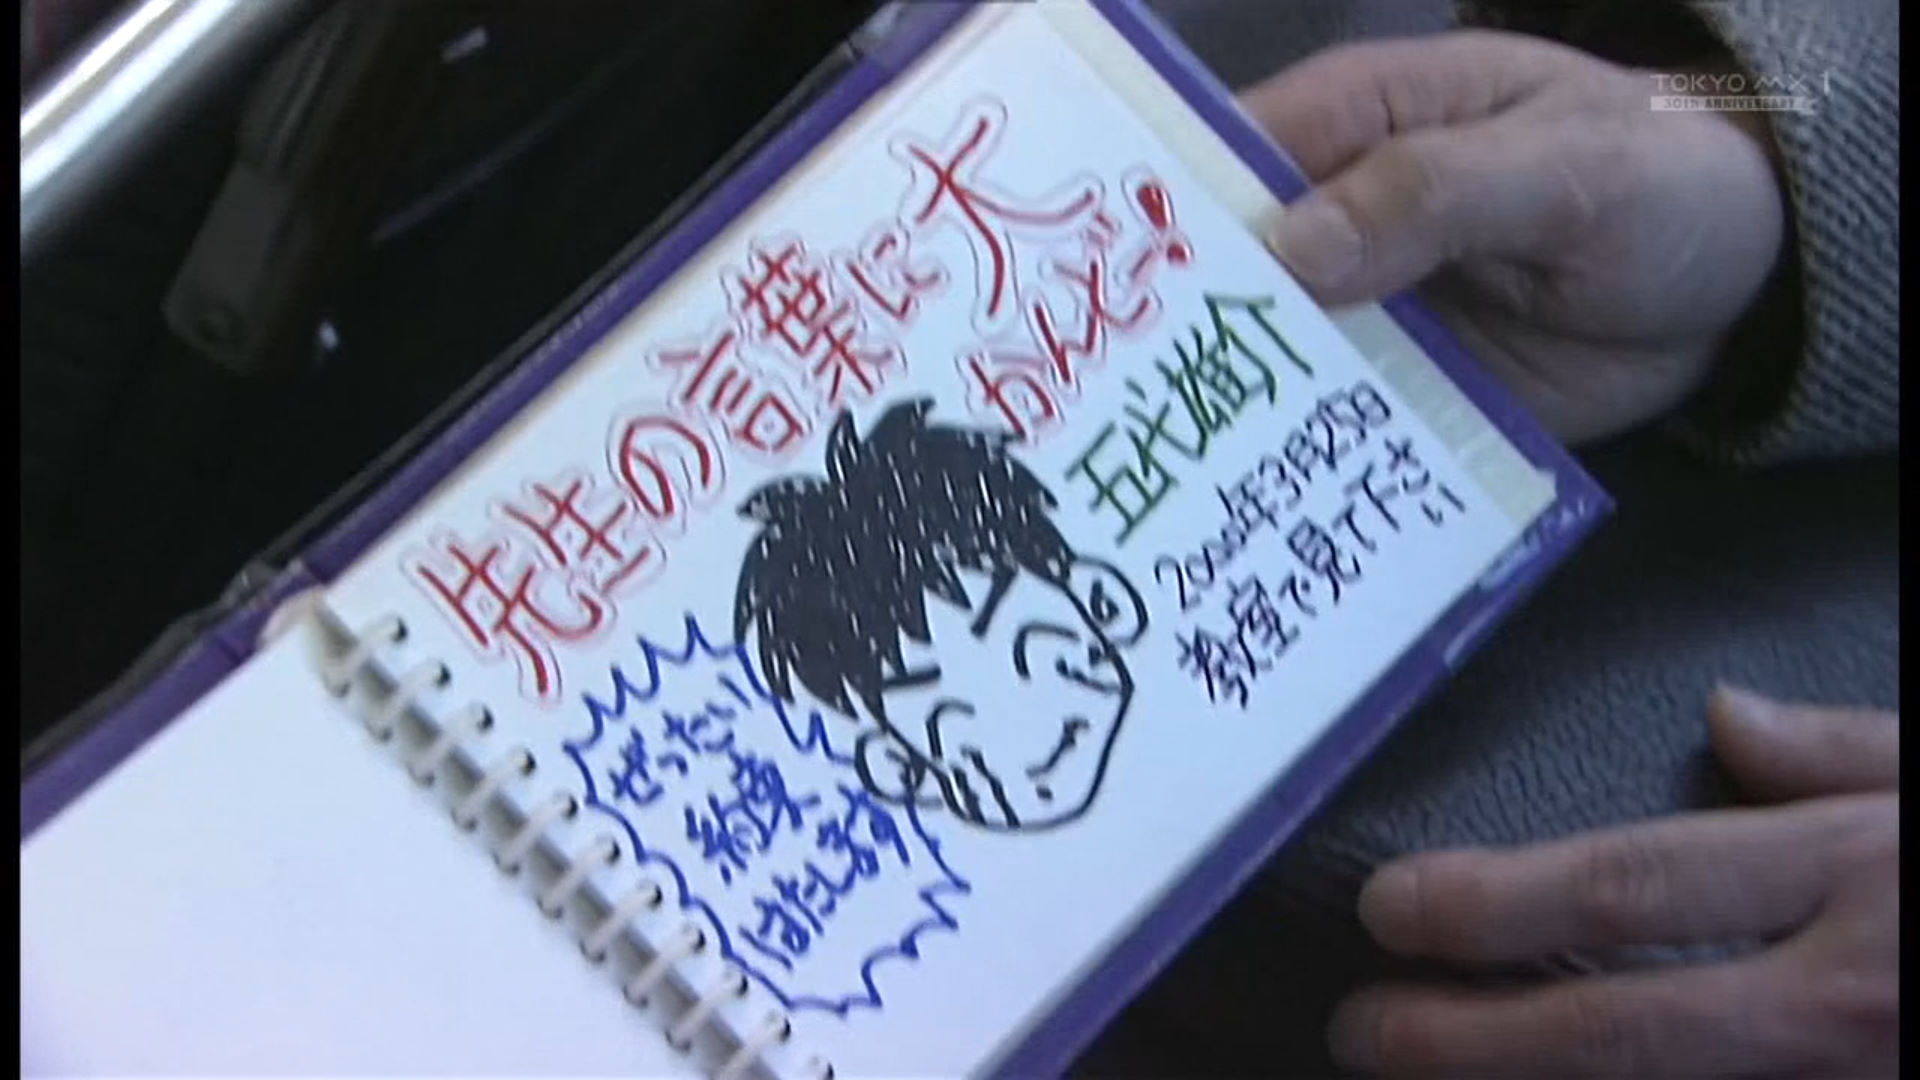 TOKYO MX 1
30TH ANNIVERSARY
先生の言葉に大
かんどー!
五代雄介
2000年3月25日
教室で見て下さい
ぜったい
約束
はたします